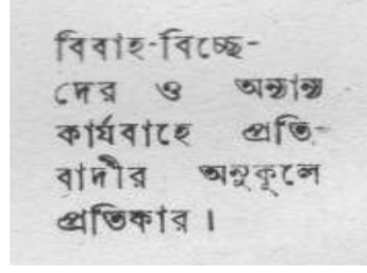 বিবাহ-বিচ্ছে-
দের ও অন্যান্য
কার্যবাহে প্রতি-
বাদীর অনুকূলে
প্রতিকার।